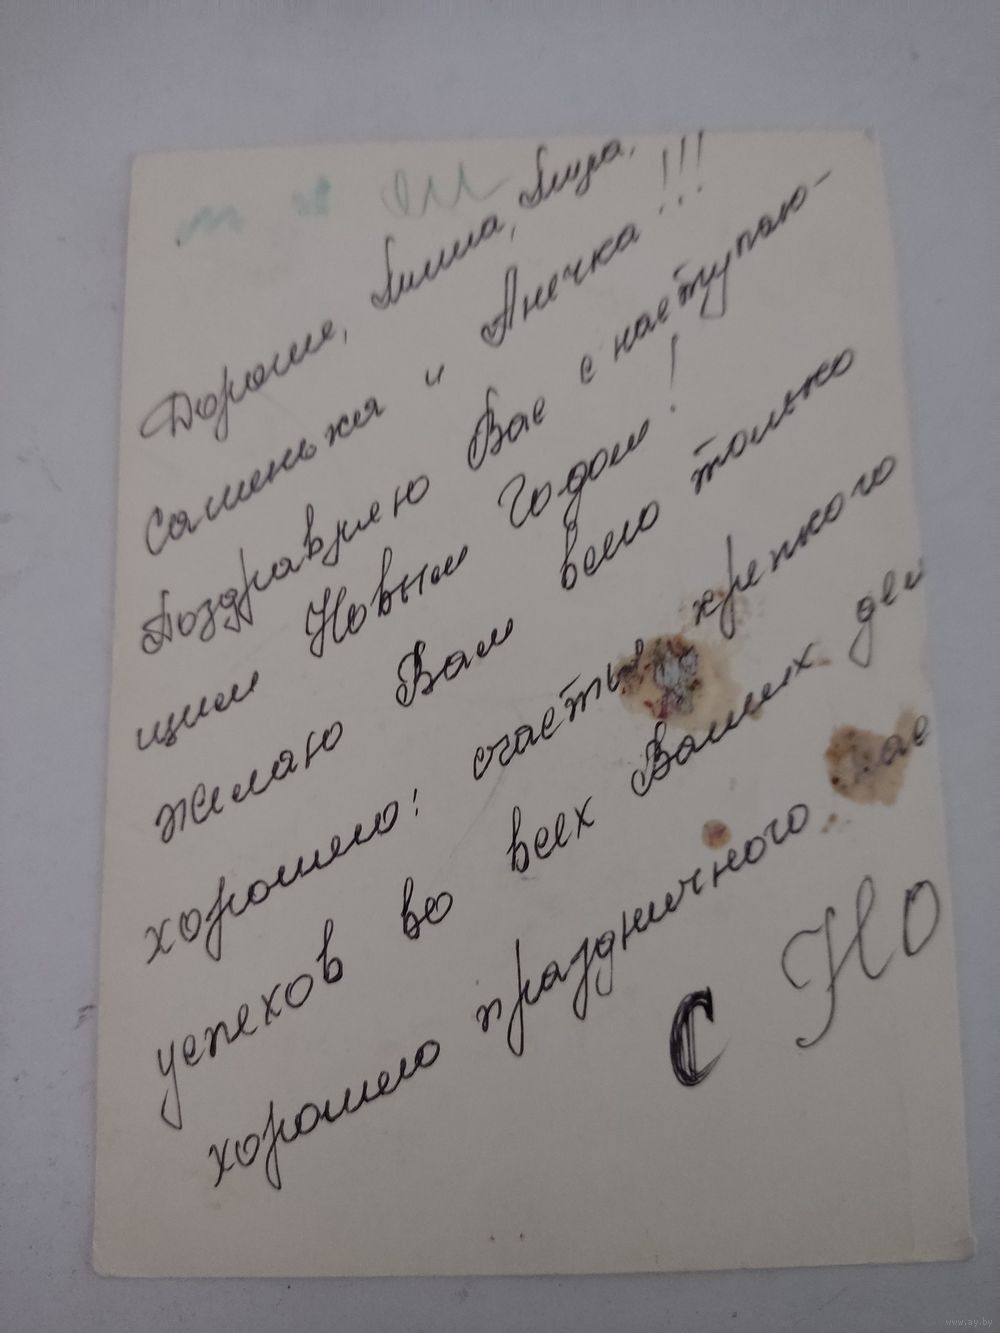 Дорогие,
Сашенька и Анечка!!!
Поздравляю Вас с наступаю-
щим Новым Годом!
желаю Вам всего только
хорошего: счастья крепкого
успехов во всех Ваших дел
хорошего праздничного нас
С Но
www.ay.by